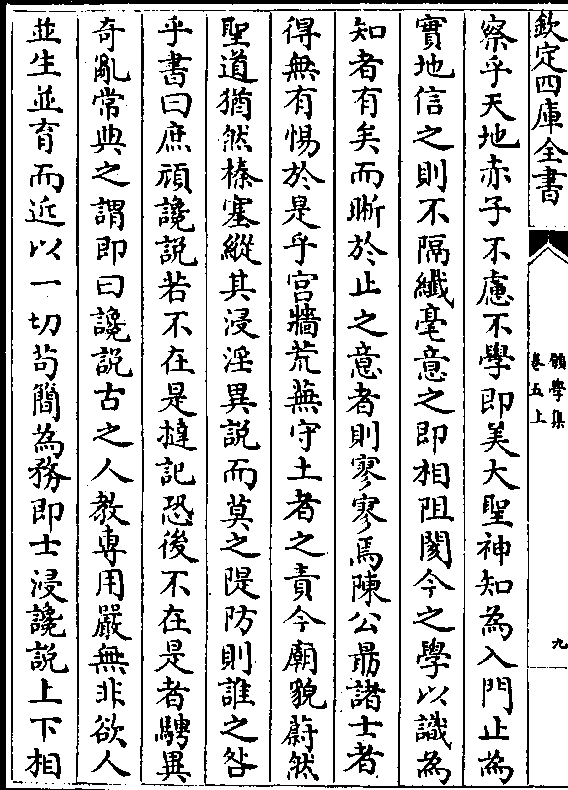 欽定四庫全書
願學集
卷五上
九
察乎天地赤子不慮不學即美大聖神知為入門止為
實地信之則不隔纖毫意之即相阻閡今之學以識為
知者有矣而晰於止之意者則寥寥焉陳公勗諸士者
得無有惕於是乎宫牆荒蕪守土者之責今廟貌蔚然
聖道猶然榛塞縱其浸淫異說而莫之隄防則誰之咎
乎書曰庶頑讒說若不在是撻記恐後不在是者騁異
奇亂常典之謂即曰讒説古之人教専用嚴無非欲人
並生並育而近以一切茍簡為務即士浸讒說上下相